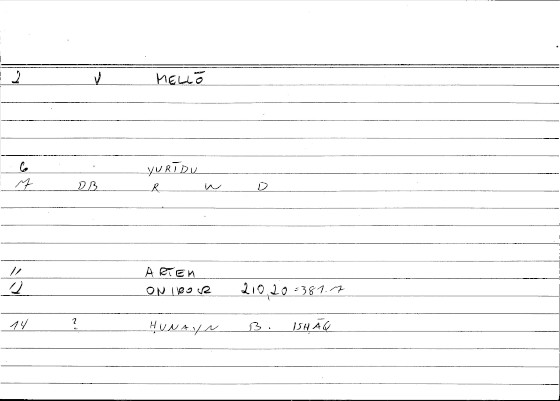 2 V MELLŌ
6 YURĪDU
M DB R W D
11 ARTEM
12 ONIROCR 210,20=381.17
14 ? ḤUNAYN B. ISḤĀQ